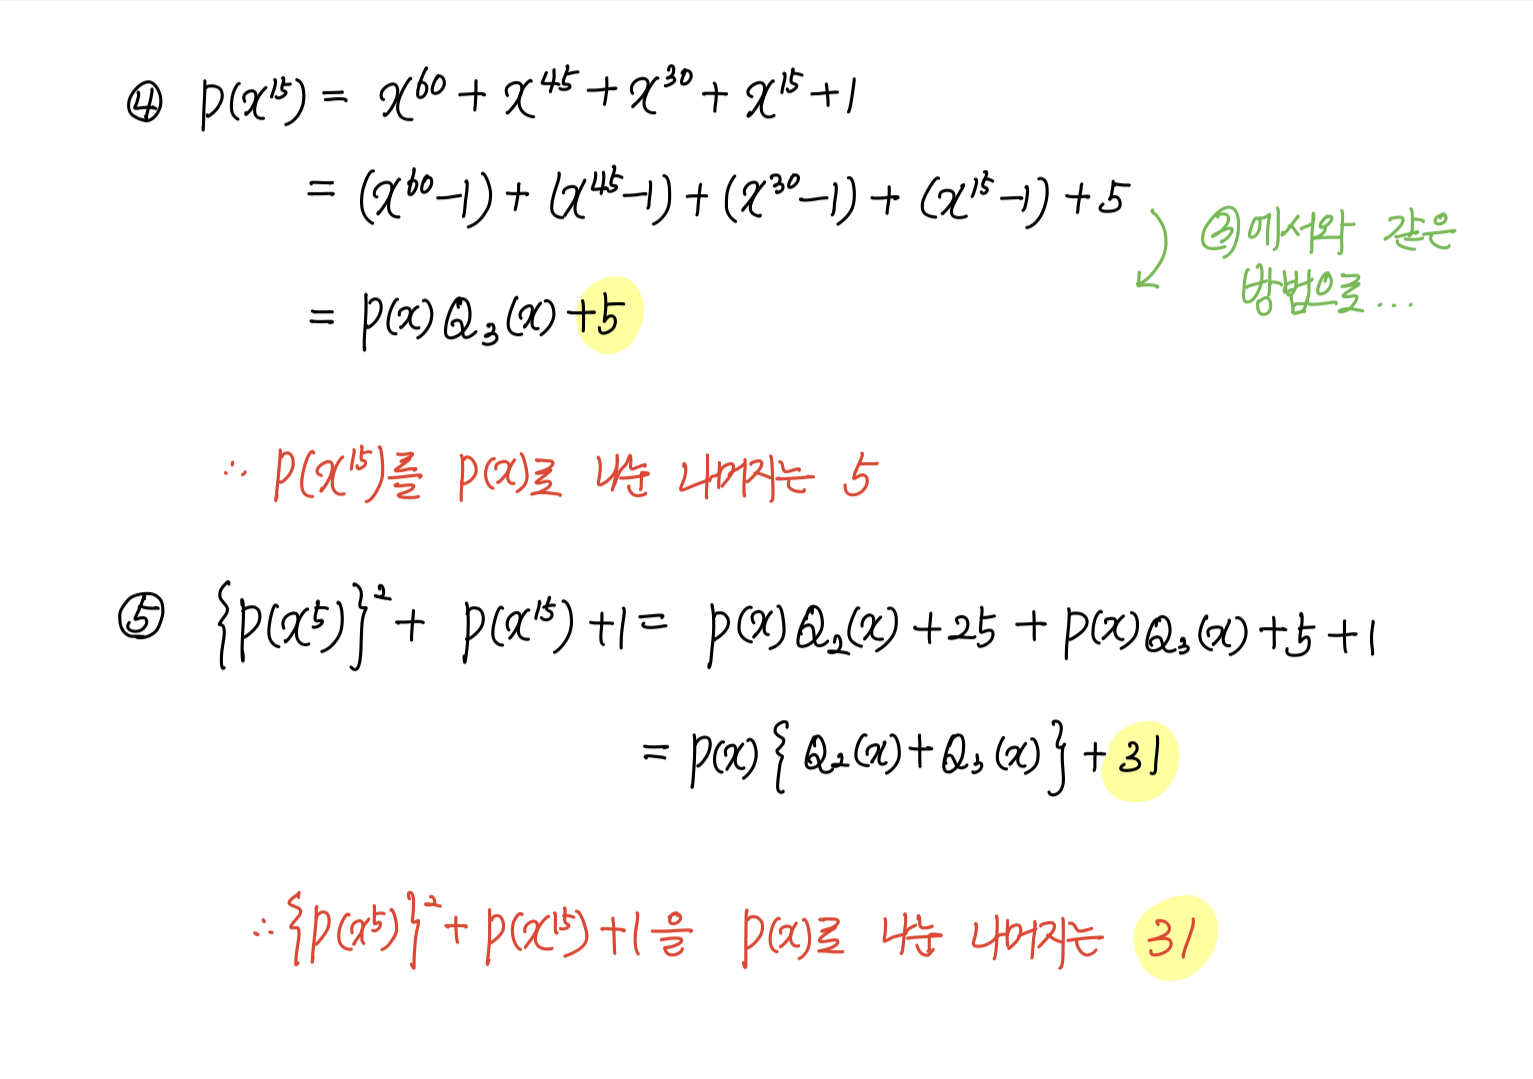 ④ P(x¹⁵) = x⁶⁰ + x⁴⁵ + x³⁰ + x¹⁵ + 1
= (x⁶⁰-1) + (x⁴⁵-1) + (x³⁰-1) + (x¹⁵-1) + 5
③에서와 같은
방법으로...
= P(x) Q₃(x) + 5
∴ P(x¹⁵)를 P(x)로 나눈 나머지는 5
⑤ {P(x⁵)}² + P(x¹⁵) + 1 = P(x) Q₂(x) + 25 + P(x) Q₃(x) + 5 + 1
= P(x) { Q₂(x) + Q₃(x) } + 31
∴ {P(x⁵)}² + P(x¹⁵) + 1을 P(x)로 나눈 나머지는 31